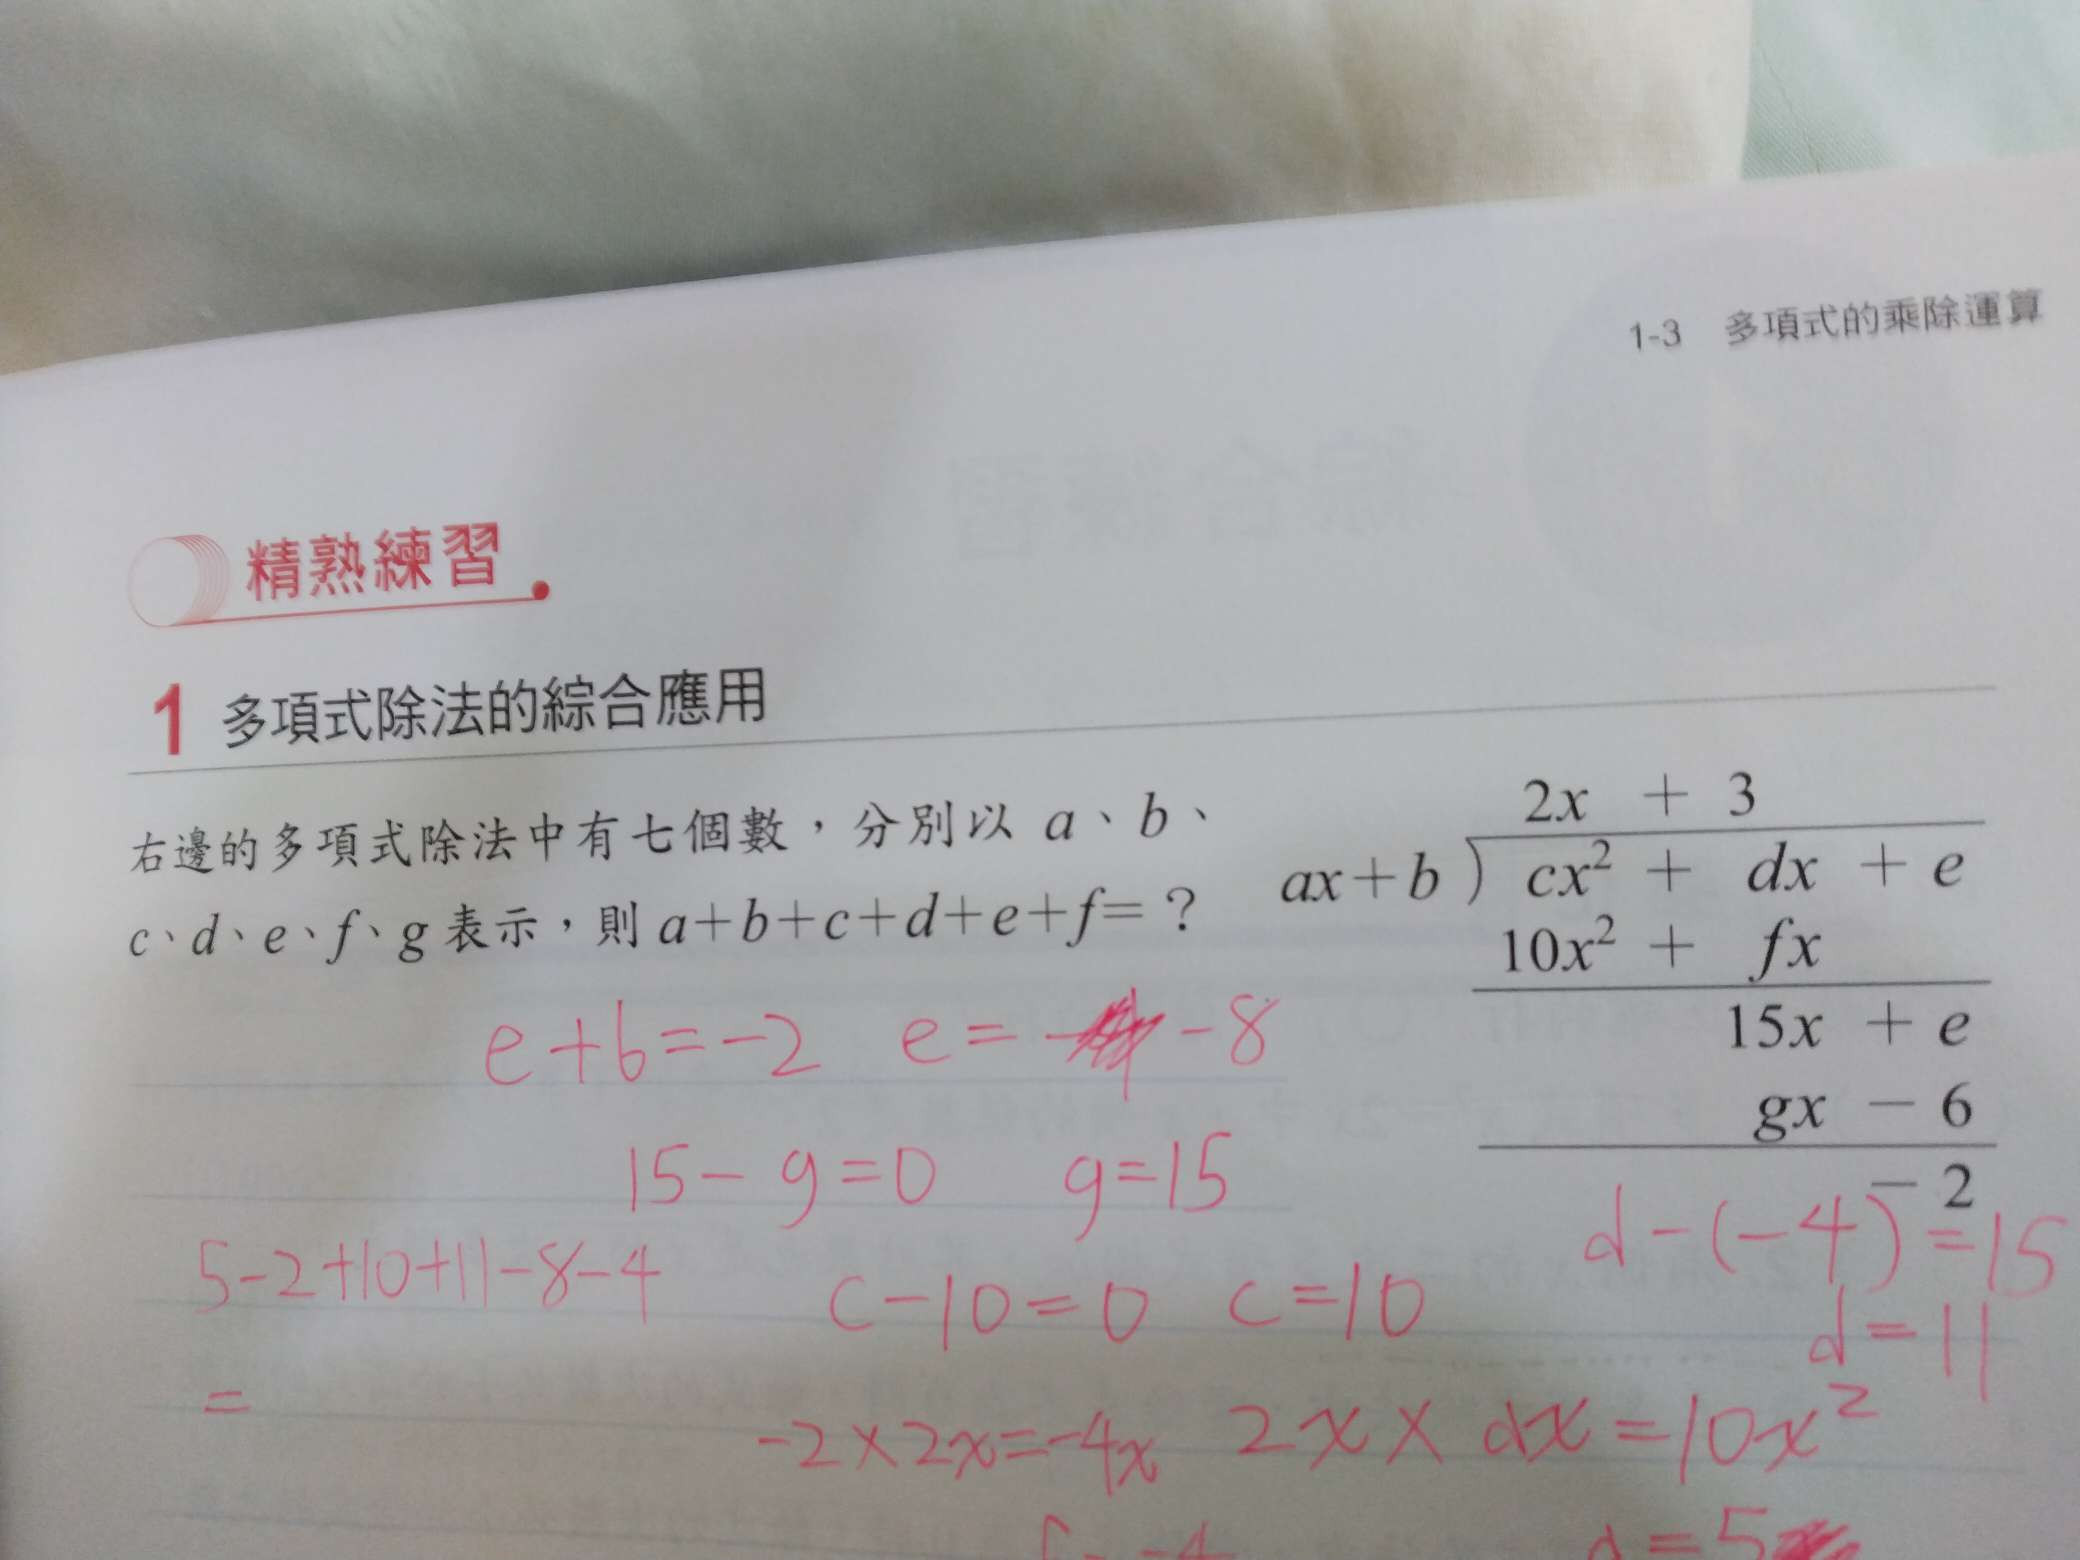 1-3 多項式的乘除運算
精熟練習
1 多項式除法的綜合應用
右邊的多項式除法中有七個數，分別以 a、b、
c、d、e、f、g 表示，則 a+b+c+d+e+f=？
2x + 3
ax+b ) cx² + dx + e
10x² + fx
15x + e
gx - 6
- 2
e+6=-2 e= -8
15-g=0 g=15
d-(-4)=15
d=11
5-2+10+11-8-4
=
c-10=0 c=10
-2×2x=-4x 2x×ax=10x²
f=-4 a=5